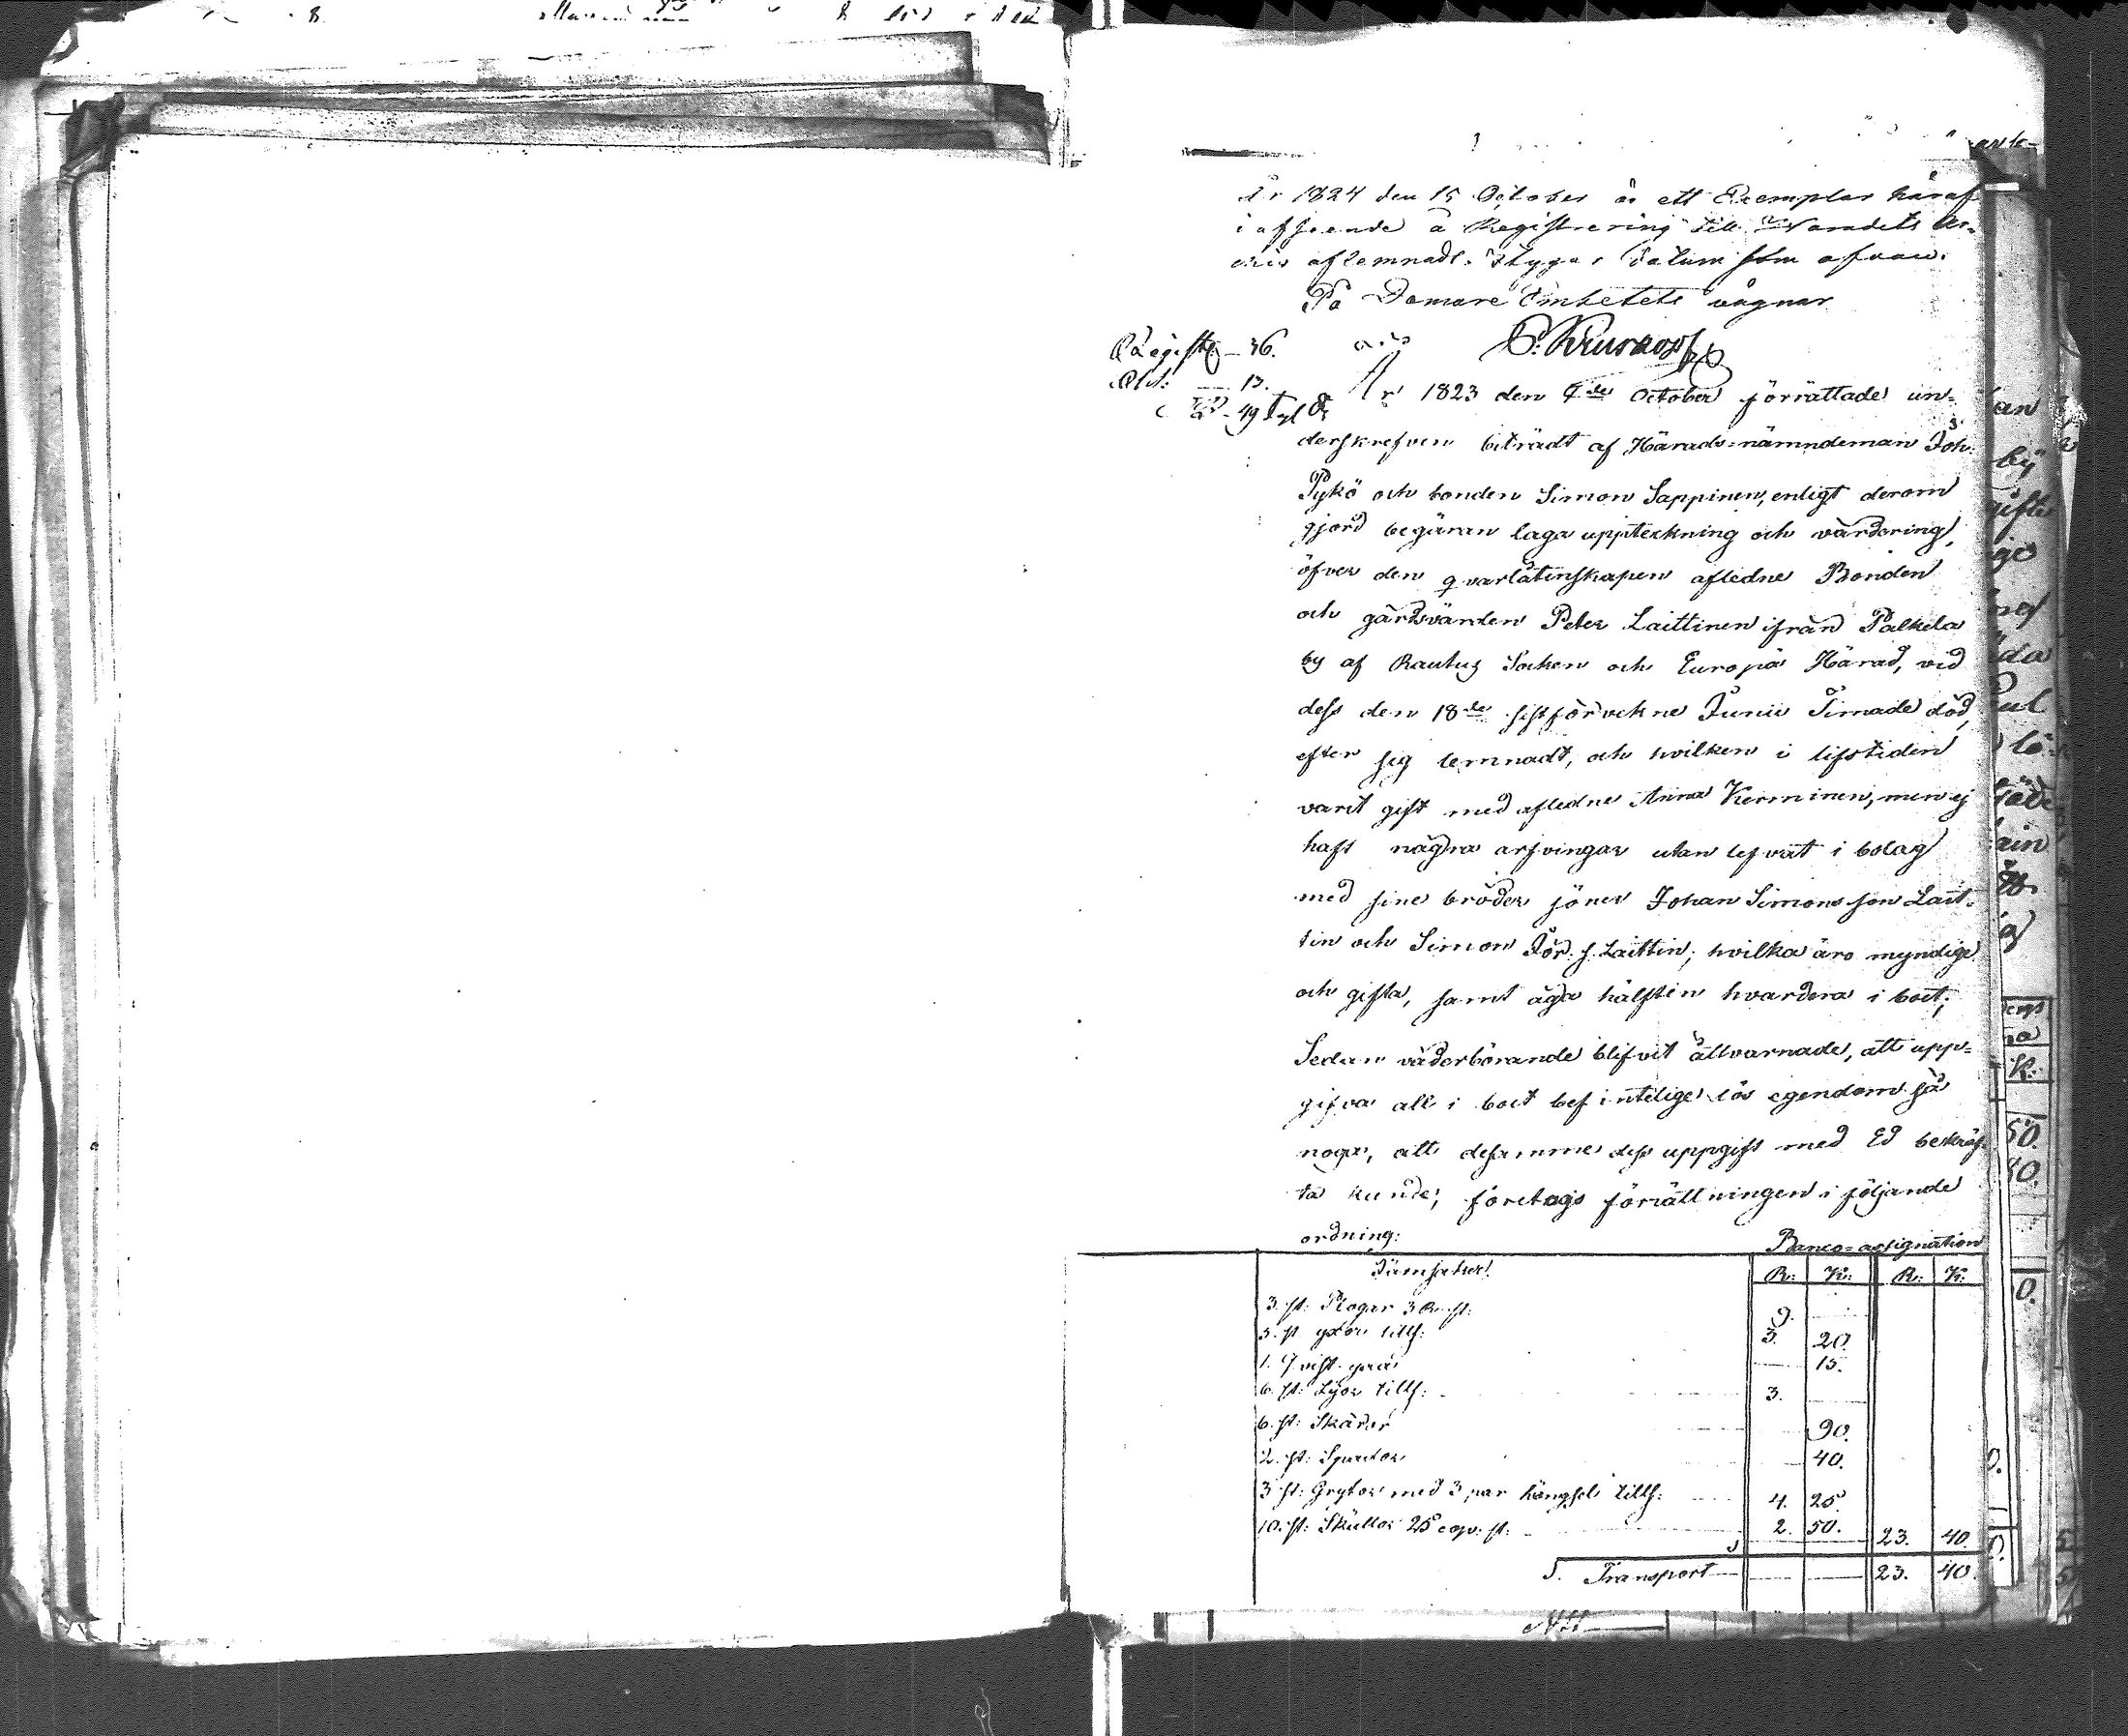 År 1824 den 15 October är ett Exemplar häraf
i afseende å Registrering till Häradets Ar-
chiv aflemnadt. Betygar Datum som ofvan.
På Domare Embetets vägnar
År 1823 den 4de October förrättade un-
derskrefven biträdt af Härads-nämndeman Joh:
Pykö och bonden Simon Sappinen, enligt derom
gjord begäran laga uppteckning och värdering,
öfver den qvarlåtenskapen afledne Bonden
och gårdsvärden Peter Laittinen ifrån Palkela
by af Rautus Socken och Europä Härad, vid
dess den 18de sistförvekne Junii Timade död,
efter sig lemnadt, och hvilken i lifstiden
varit gift med afledne Anna Kerminen, men ej
haft några arfvingar utan lefvat i bolag
med sine bröders söner Johan Simonsson Lait-
tin och Simon Jör. s. Laittin; hvilka äro myndige
och gifta, samt äga hälften hvardera i boet;
Sedan väderbörande blifvit åtvarnade, att upp-
gifva all i boet befintelige lös egendom så
noga, att desamme dess uppgift med Ed bekräf-
ta kunde; företogs förrättningen i följande
ordning:
Banco-assignation
Järnsaker. R: K: R: K:
3. st: Plogar 3 R. st: 9.
5. st yxor tills: 3. 20.
1. Qvist yxa 15.
6. st: Lijor tills: 3.
6. st: Skäror 90.
2. st: 40.
3 st: Grytor med 3 par hängsel tills: 4. 25.
10. st: Skållor 25 cop: st: 2. 50. 23. 40.
S. Transport 23. 40.